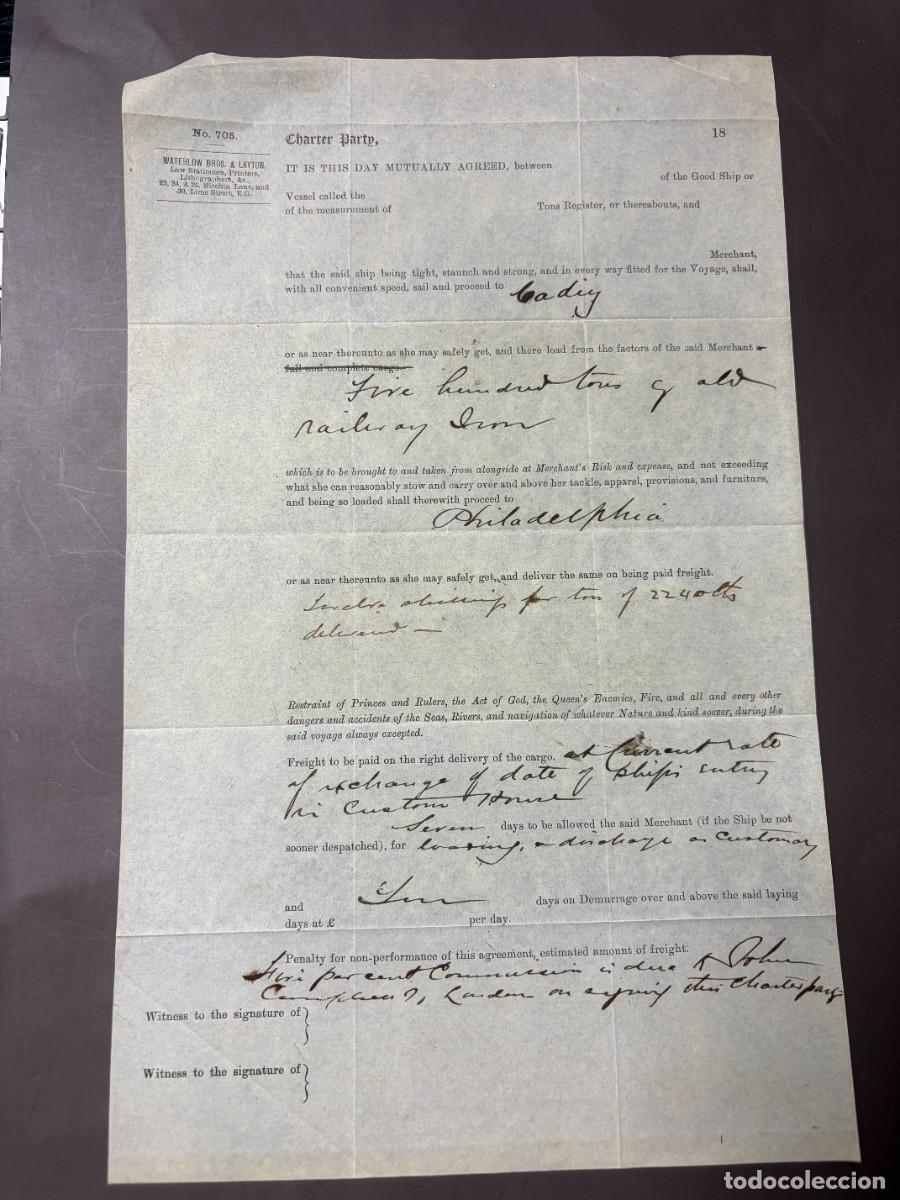 No. 705.
WATERLOW BROS. & LAYTON,
Law Stationers, Printers,
Lithographers, &c.,
23, 24, & 25, Birchin Lane, and
30, Lime Street, E.C.
Charter Party,
18
IT IS THIS DAY MUTUALLY AGREED, between
of the Good Ship or
Vessel called the
of the measurement of Tons Register, or thereabouts, and
Merchant,
that the said ship being tight, staunch and strong, and in every way fitted for the Voyage, shall,
with all convenient speed, sail and proceed to Cadiz
or as near thereunto as she may safely get, and there load from the factors of the said Merchant a
full and complete cargo.
Five hundred tons of old
railway Iron
which is to be brought to and taken from alongside at Merchant's Risk and expense, and not exceeding
what she can reasonably stow and carry over and above her tackle, apparel, provisions, and furniture,
and being so loaded shall therewith proceed to
Philadelphia
or as near thereunto as she may safely get, and deliver the same on being paid freight.
Twelve shillings per ton of 2240 lbs
delivered —
Restraint of Princes and Rulers, the Act of God, the Queen's Enemies, Fire, and all and every other
dangers and accidents of the Seas, Rivers, and navigation of whatever Nature and kind soever, during the
said voyage always excepted.
Freight to be paid on the right delivery of the cargo. at Current rate
of exchange of date of ship's entry
in Custom House
Seven days to be allowed the said Merchant (if the Ship be not
sooner despatched), for loading, & discharge as Customary
and Ten days on Demurrage over and above the said laying
days at £ per day.
Penalty for non-performance of this agreement, estimated amount of freight.
Five per cent Commission is due to John
London on signing this Charterparty
Witness to the signature of }
Witness to the signature of }
todocoleccion